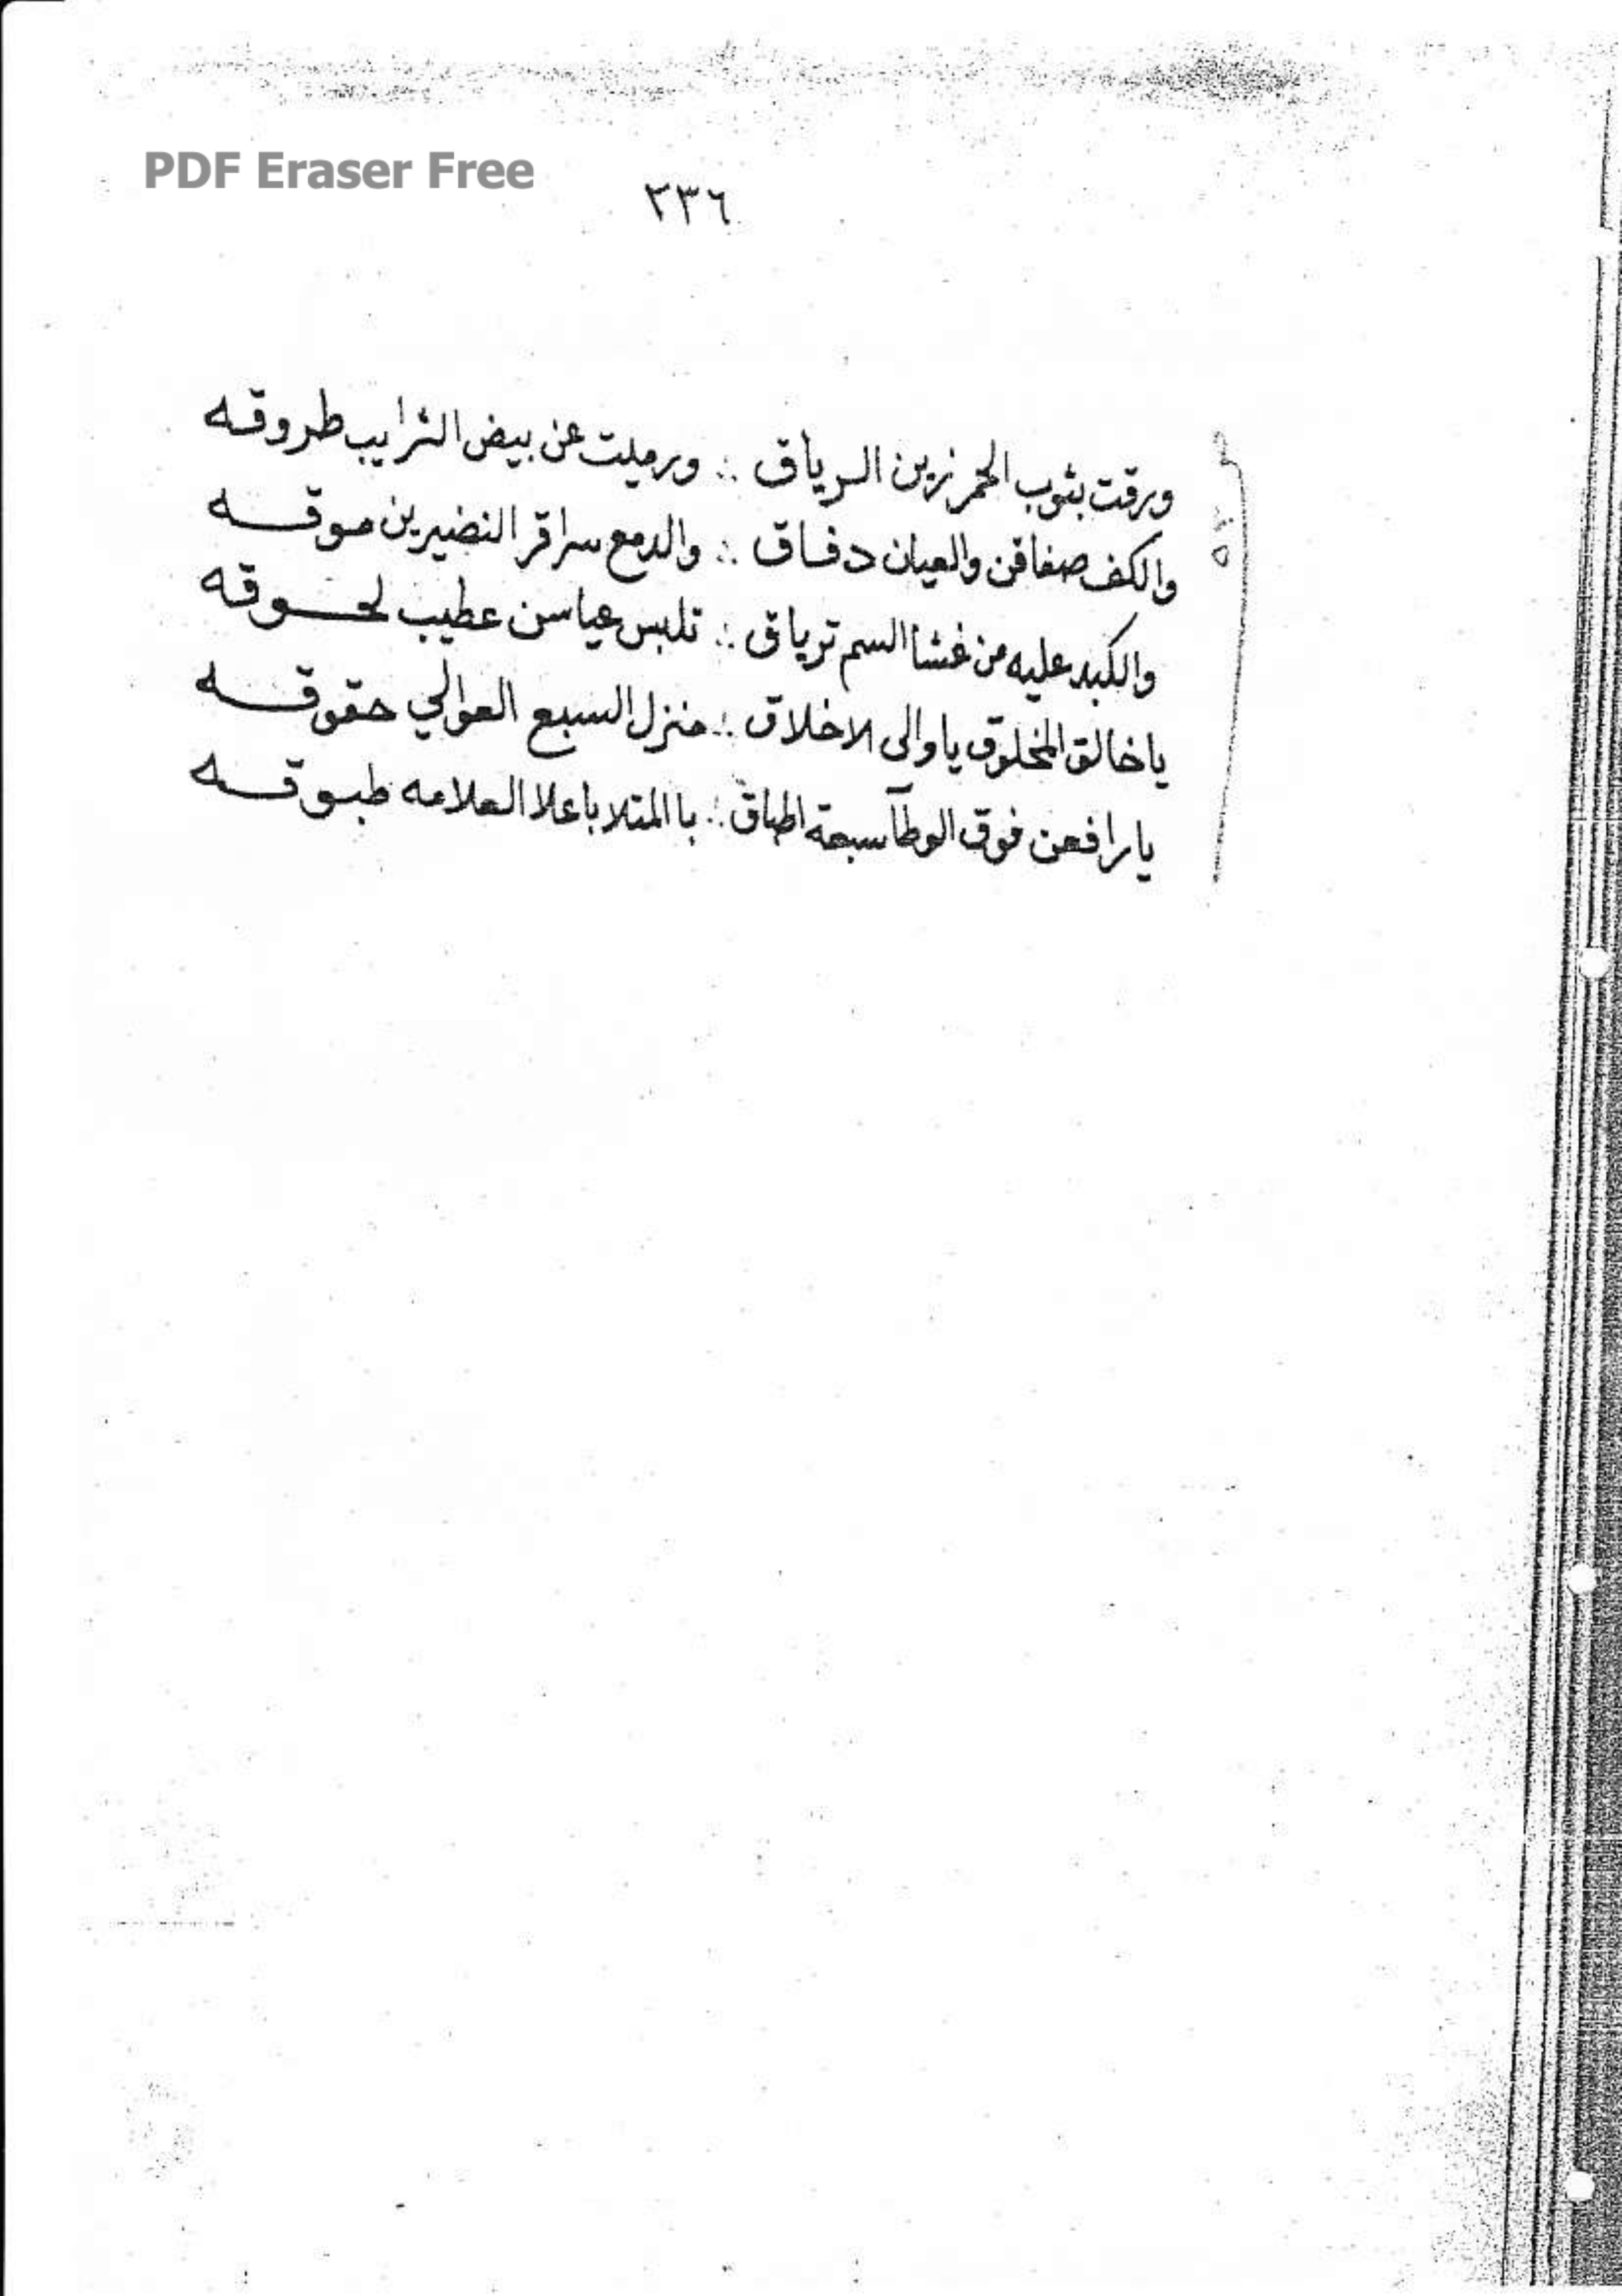 PDF Eraser Free
٢٣٦
ورقت بثوب الحمر زين الرياق ∴ ورميت عن بيض الترايب طروقه
والكف صفاقن والعيان دفاق ∴ والدمع سراقر النضيرين موقه
والكبد عليه من غشا السم ترياق ∴ تلبس عياسن عطيب لحوقه
يا خالق المخلوق يا والى الاخلاق ∴ منزل السبع العوالي حقوقه
يا رافعن فوق الوطآ سبعة اطباق ∴ با المتلا باعلا العلامه طبوقه